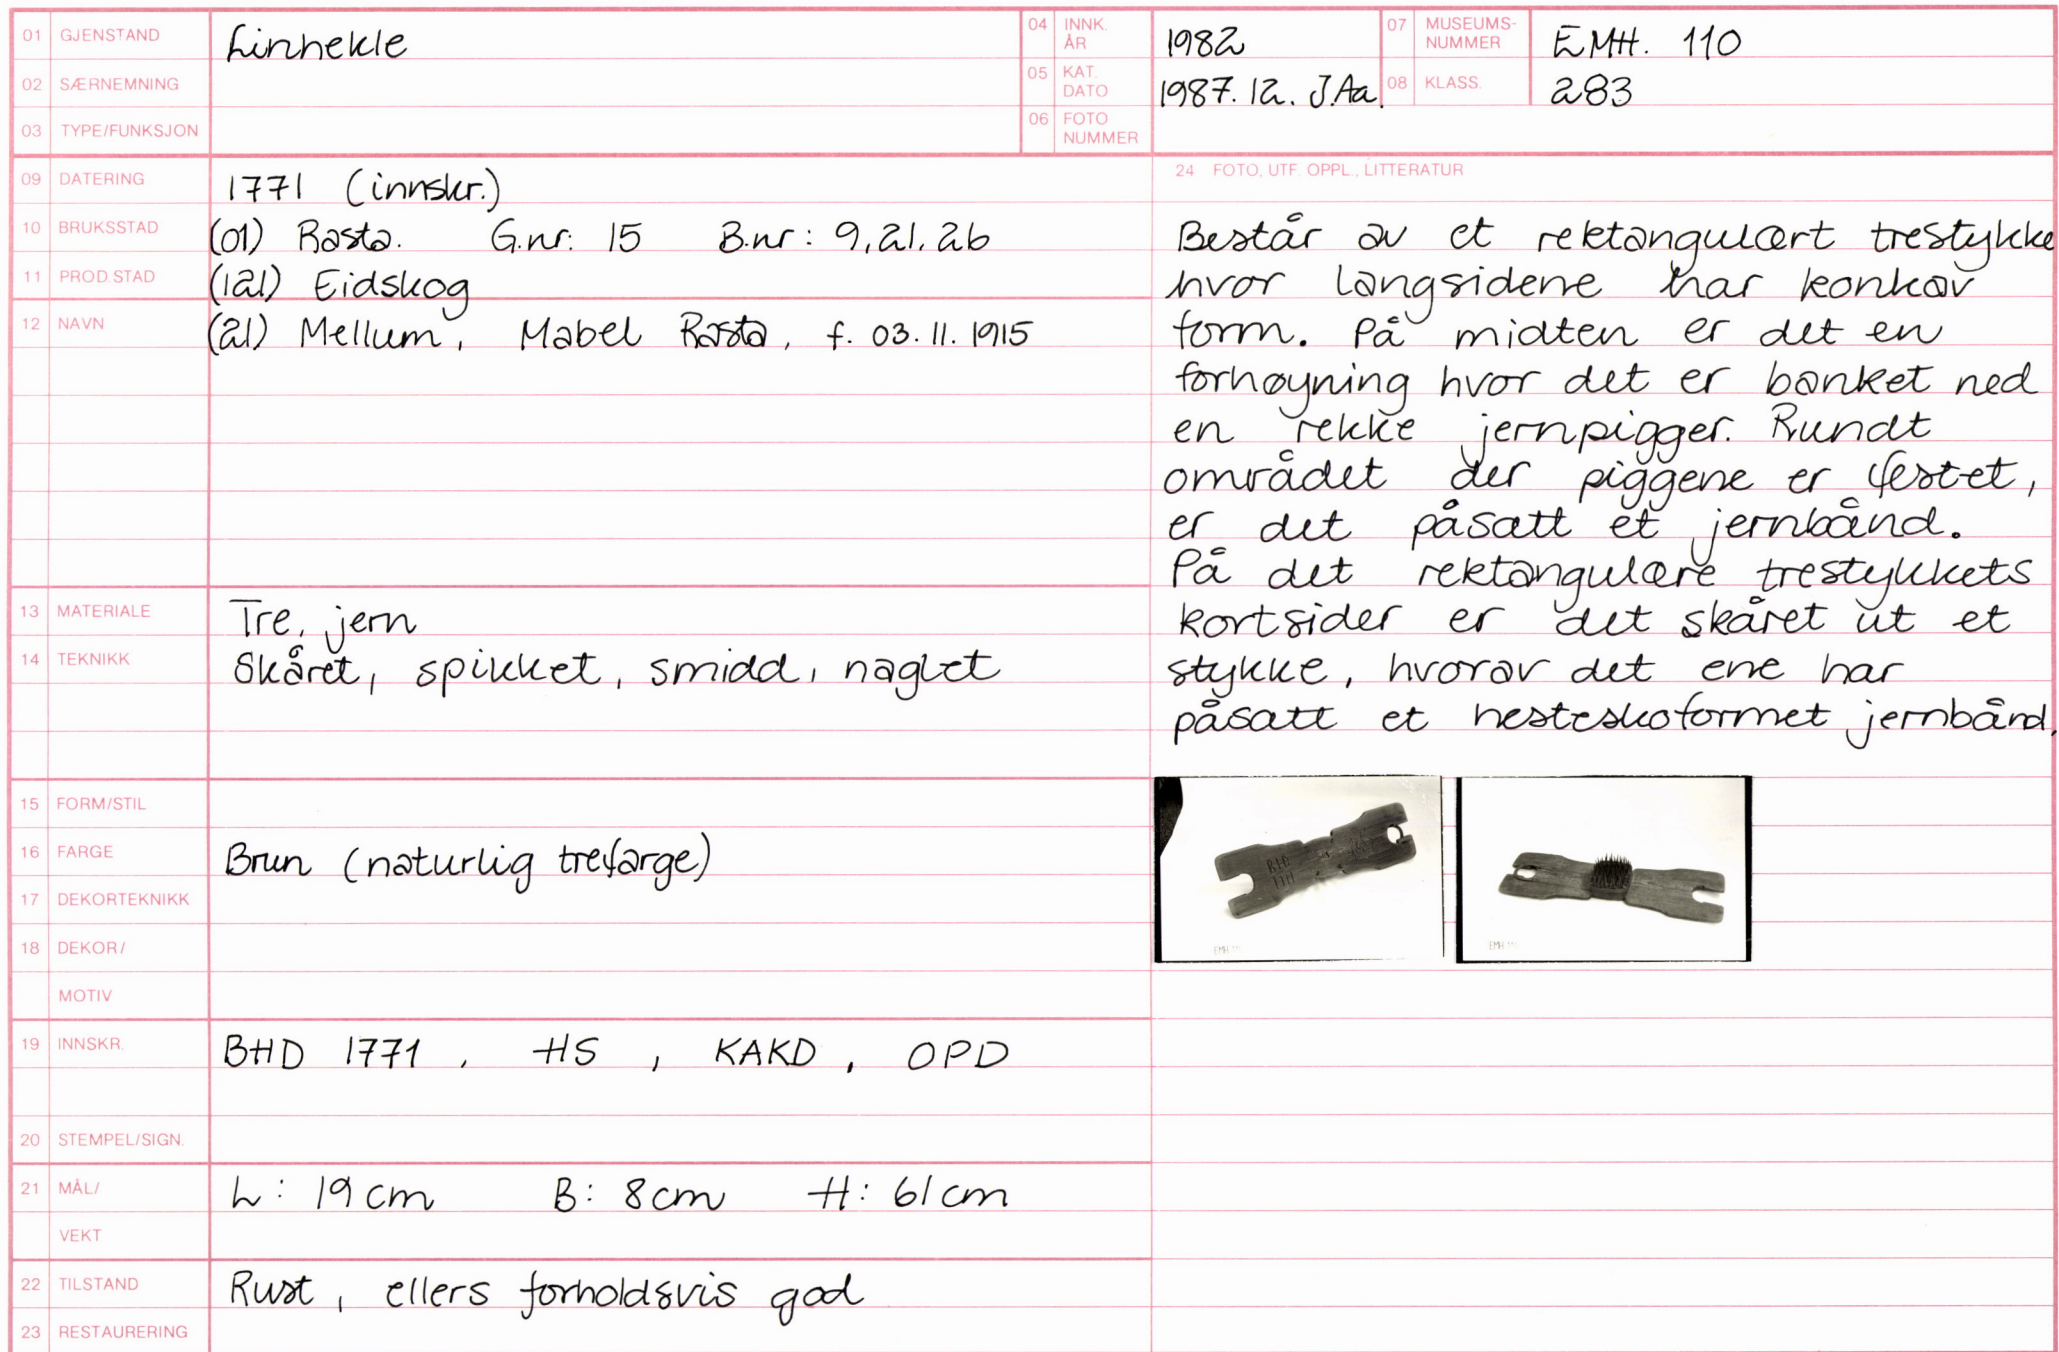 01 GJENSTAND Linhekle
02 SÆRNEMNING
03 TYPE/FUNKSJON
04 INNK. ÅR 1982
05 KAT. DATO 1987.12. J.Aa.
06 FOTO NUMMER
07 MUSEUMS-NUMMER EMH. 110
08 KLASS. 283
09 DATERING 1771 (innskr.)
10 BRUKSSTAD (01) Rasta. G.nr: 15 B.nr: 9,21,26
11 PROD.STAD (121) Eidskog
12 NAVN (21) Mellum, Mabel Rasta, f. 03.11.1915
13 MATERIALE Tre, jern
14 TEKNIKK Skåret, spikket, smidd, naglet
15 FORM/STIL
16 FARGE Brun (naturlig trefarge)
17 DEKORTEKNIKK
18 DEKOR/
MOTIV
19 INNSKR. BHD 1771, HS, KAKD, OPD
20 STEMPEL/SIGN.
21 MÅL/ L: 19 cm B: 8 cm H: 61 cm
VEKT
22 TILSTAND Rust, ellers forholdsvis god
23 RESTAURERING
24 FOTO, UTF. OPPL., LITTERATUR
Består av et rektangulært trestykke
hvor langsidene har konkav
form. På midten er det en
forhøyning hvor det er banket ned
en rekke jernpigger. Rundt
området der piggene er festet,
er det påsatt et jernbånd.
På det rektangulære trestykkets
kortsider er det skåret ut et
stykke, hvorav det ene har
påsatt et hesteskoformet jernbånd.